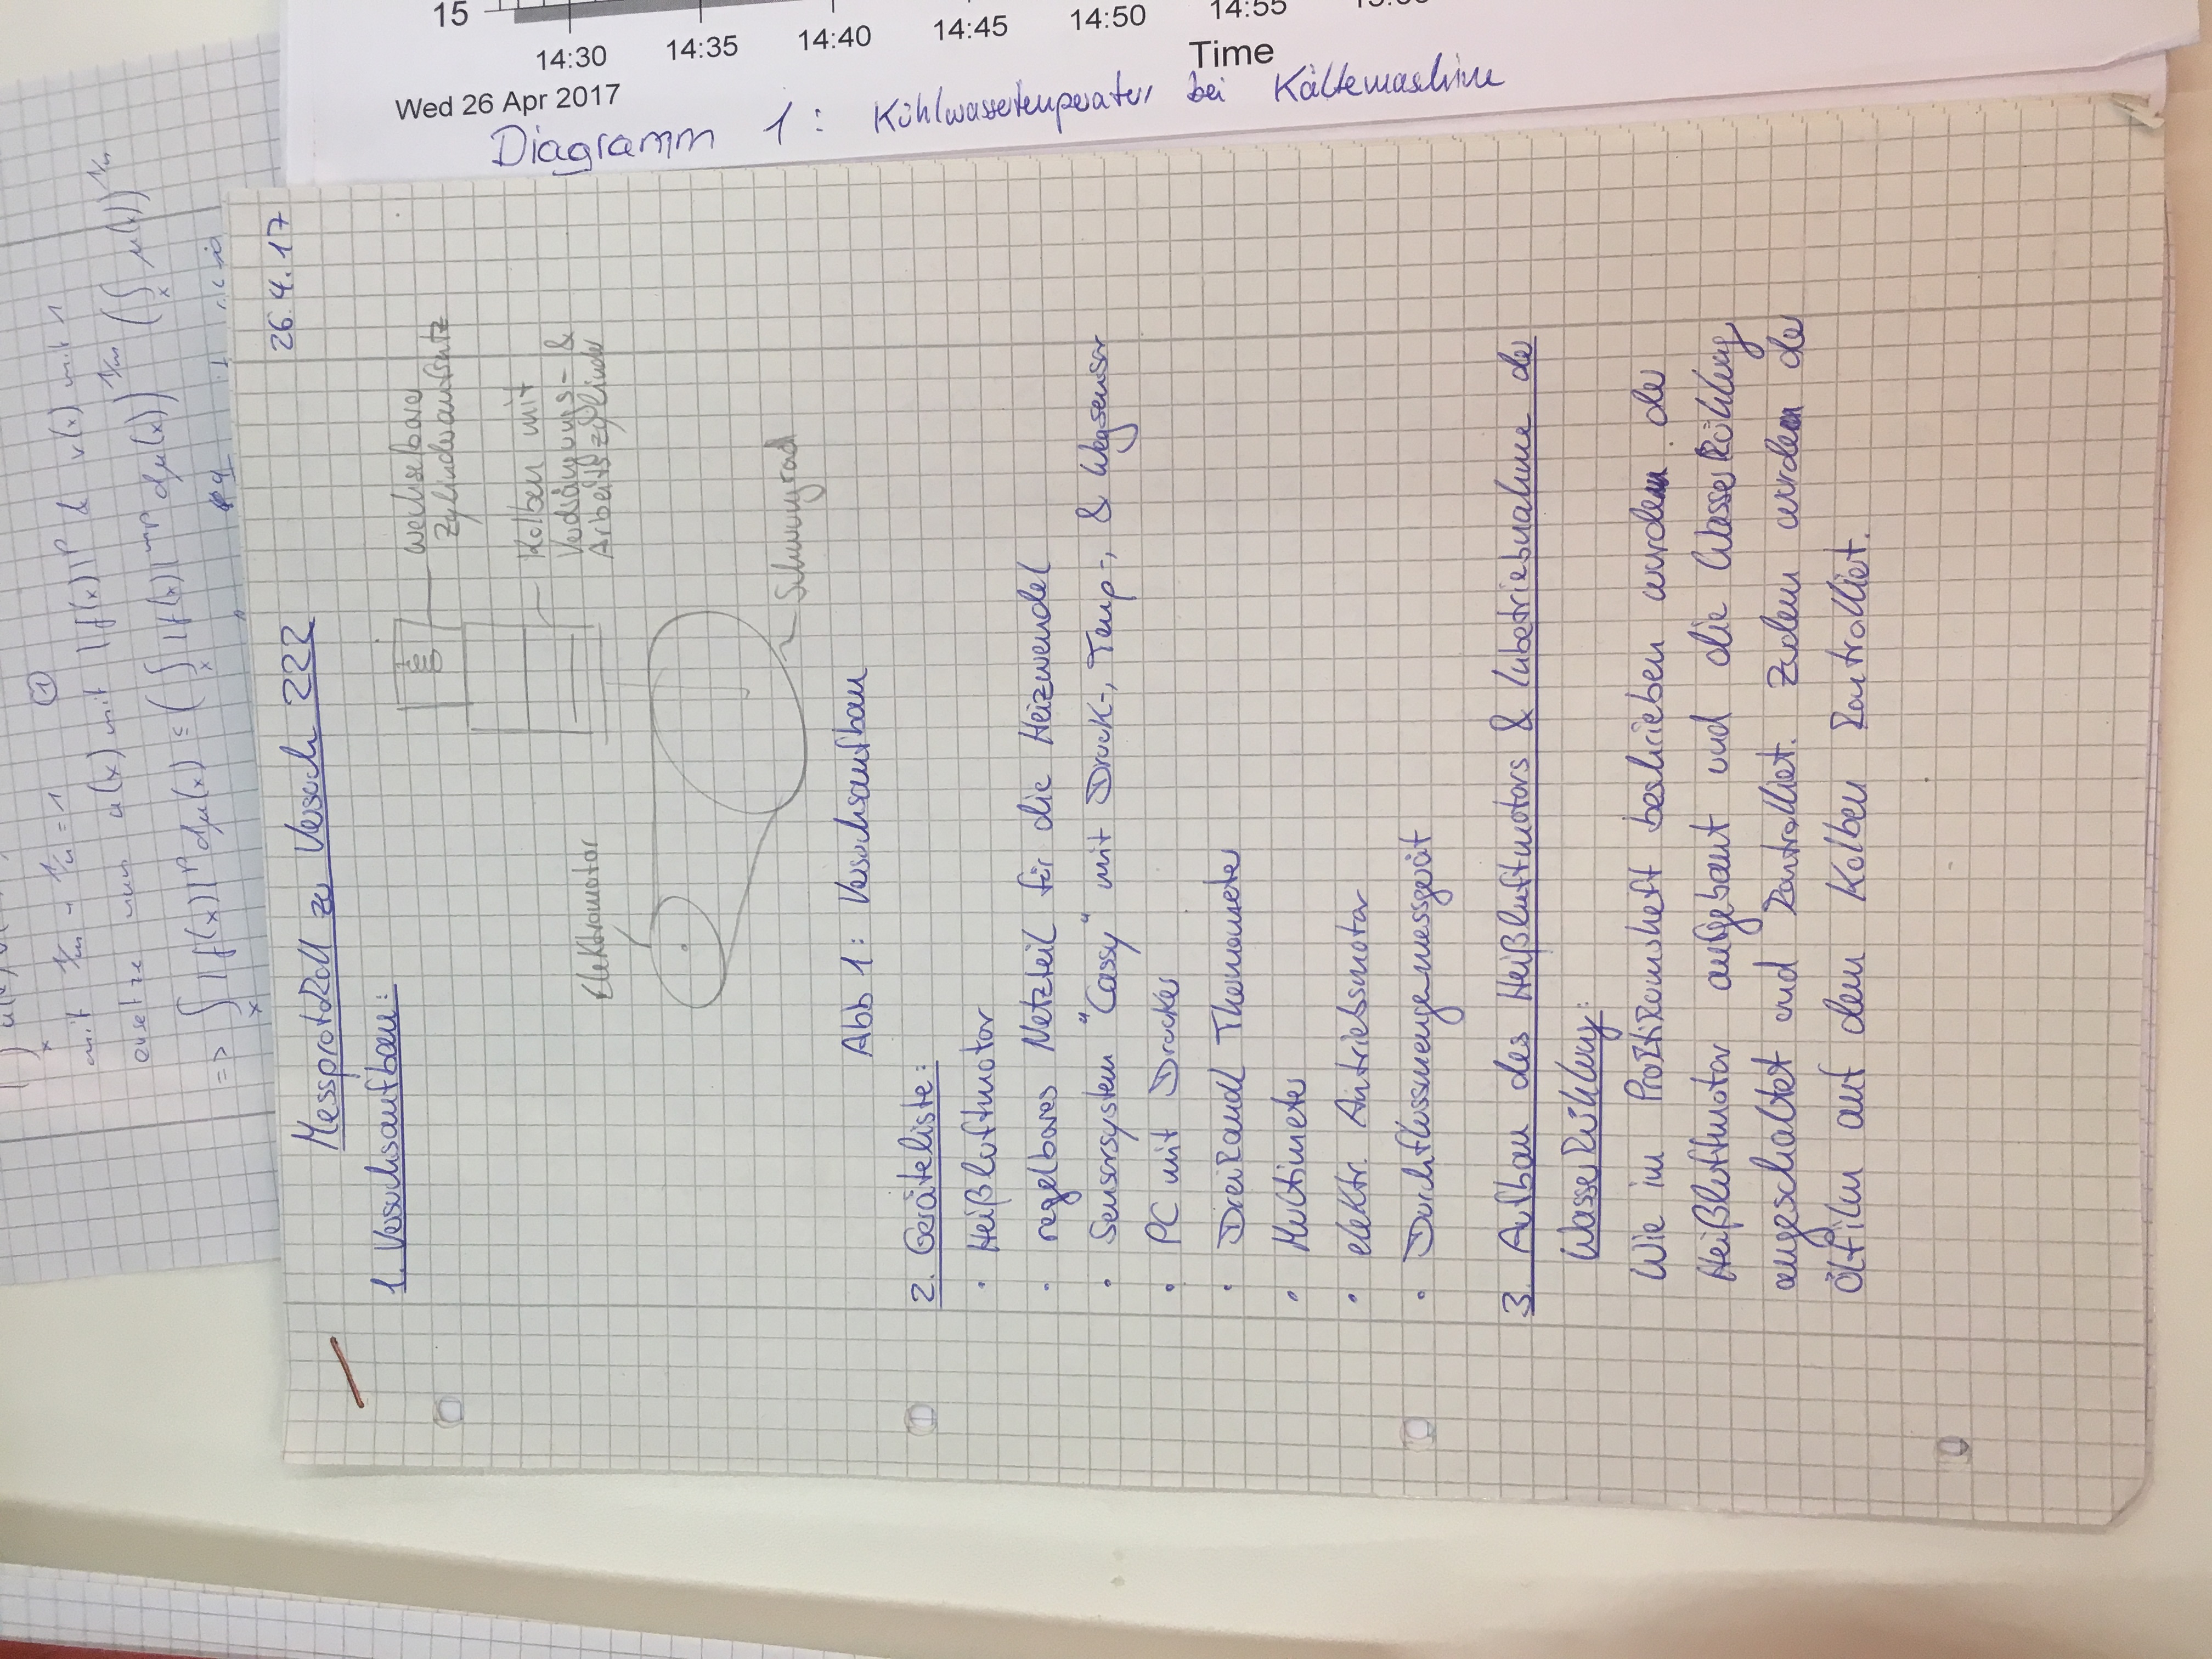 mit 1/m + 1/n = 1 ①
ersetze nun u(x) mit |f(x)|^p & v(x) mit 1
=> ∫_x |f(x)|^p dμ(x) ≤ (∫_x |f(x)|^mp dμ(x))^1/m (∫_x μ(x))^1/n
Messprotokoll zu Versuch 222
26.4.17
1. Versuchsaufbau:
wechselbarer
Zylinderaufsatz
Kolben mit
Verdrängungs- &
Arbeitszylinder
Elektromotor
Schwungrad
Abb 1: Versuchsaufbau
2. Geräteliste:
· Heißluftmotor
· regelbares Netzteil für die Heizwendel
· Sensorsystem "Cassy" mit Druck-, Temp-, & Wegsensor
· PC mit Drucker
· Dreikandl Thermometer
· Multimeter
· elektr. Antriebsmotor
· Durchflussmengenmessgerät
3. Aufbau des Heißluftmotors & Inbetriebnahme der
Wasserkühlung:
Wie im Praktikumsheft beschrieben wurden der
Heißluftmotor aufgebaut und die Wasserkühlung
angeschaltet und kontrolliert. Zudem wurden der
Ölfilm auf dem Kolben kontrolliert.
15
14:30
14:35
14:40
14:45
14:50
14:55
Wed 26 Apr 2017
Time
Diagramm 1: Kühlwassertemperatur bei Kältemaschine